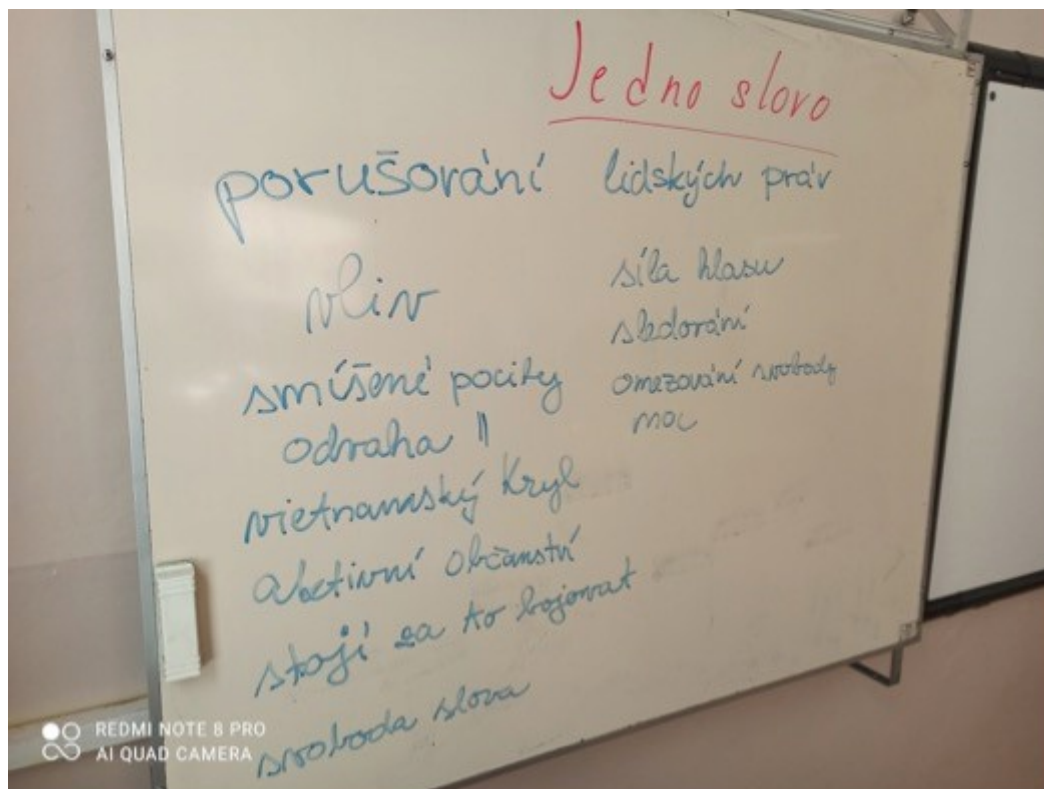 Jedno slovo
porušování lidských práv
vliv
smíšené pocity
odvaha ||
vietnamský Kryl
aktivní občanství
stojí za to bojovat
svoboda slova
síla hlasu
sledování
omezování svobody
moc
REDMI NOTE 8 PRO
AI QUAD CAMERA